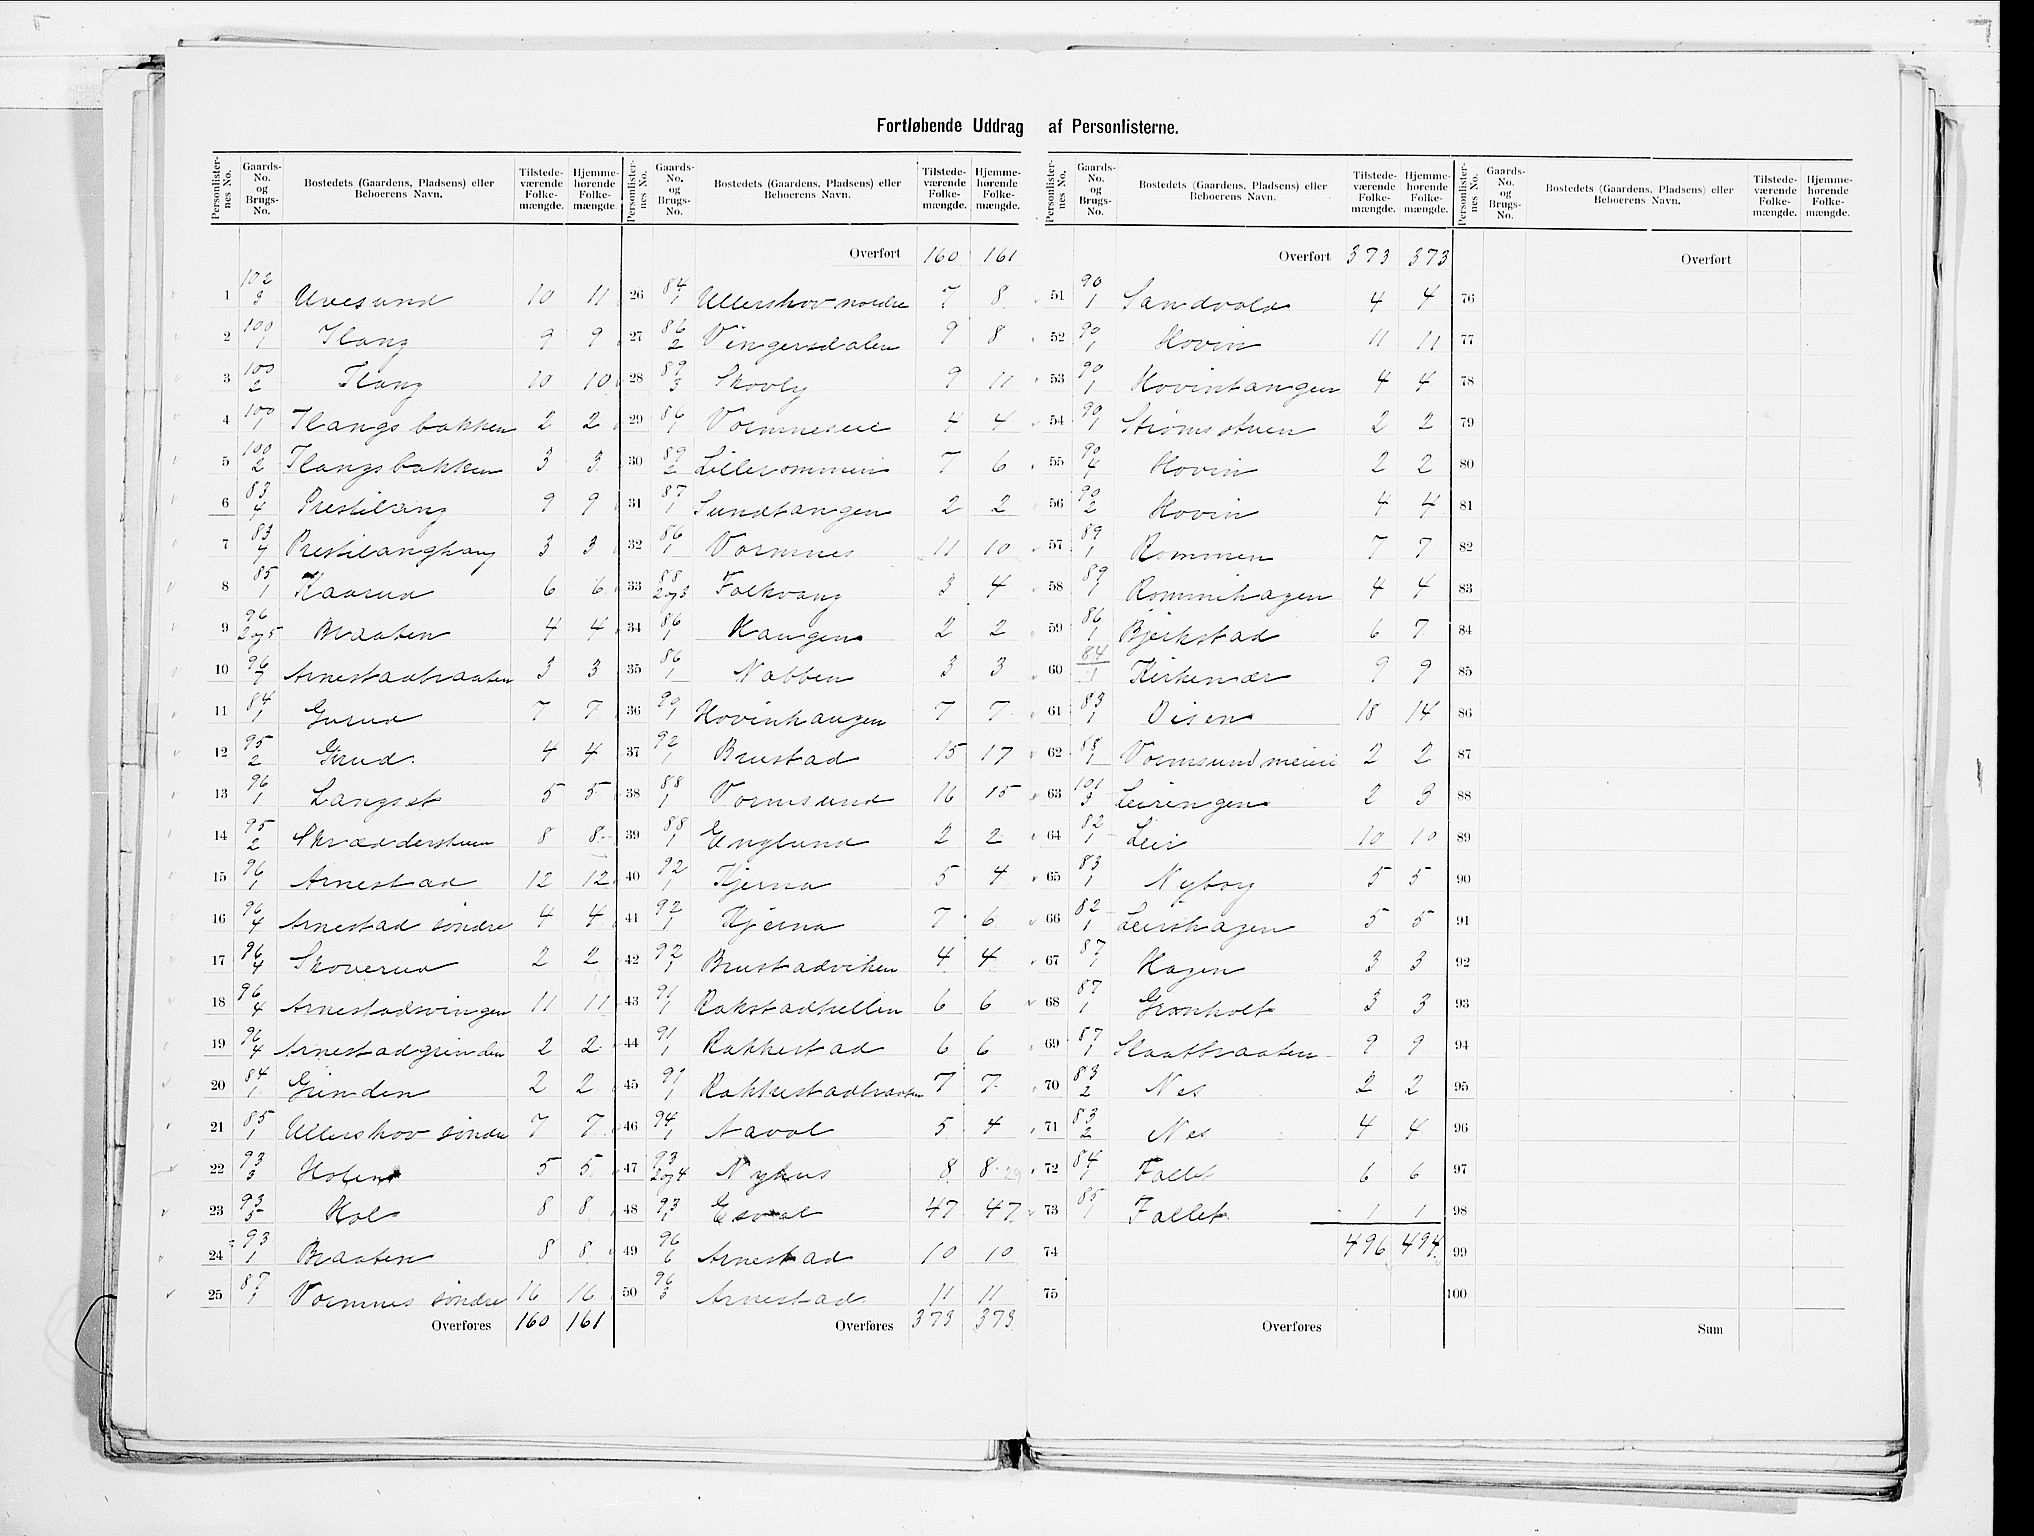 Fortløbende Uddrag af Personlisterne.
Personlister-nes No. | Gaards-No. og Brugs-No. | Bostedets (Gaardens, Pladsens) eller Beboerens Navn. | Tilstede-værende Folke-mængde. | Hjemme-hørende Folke-mængde.
1 102/3 Uvesund 10 11
2 100/1 Ilang 9 9
3 100/2 Ilang 10 10
4 100/1 Ilangsbakken 2 2
5 100/2 Ilangsbakken 3 3
6 83/4 Prestilang 9 9
7 83/4 Prestilanghaug 3 3
8 85/1 Kaarud 6 6
9 96/2og5 Braaten 4 4
10 96/7 Arnestadbraaten 3 3
11 84/1 Gurud 7 7
12 95/2 Grud. 4 4
13 96/1 Langset 5 5
14 95/2 Skrædderstuen 8 8
15 96/1 Arnestad 12 12
16 96/4 Arnestad söndre 4 4
17 96/4 Skoverud 2 2
18 96/4 Arnestadsvingen 11 11
19 96/4 Arnestadgrinden 2 2
20 84/1 Grinden 2 2
21 85/1 Ullershov söndre 7 7
22 93/3 Holen 5 5
23 93/5 Hol 8 8
24 93/1 Braaten 8 8
25 87/1 Vormnes söndre 16 16
Overføres 160 161
Personlister-nes No. | Gaards-No. og Brugs-No. | Bostedets (Gaardens, Pladsens) eller Beboerens Navn. | Tilstede-værende Folke-mængde. | Hjemme-hørende Folke-mængde.
Overført 160 161
26 84/1 Ullershov nordre 7 8
27 86/2 Vingersdalen 9 8
28 89/3 Skovly 9 11
29 86/1 Vormneseie 4 4
30 89/2 Lillerommen 7 6
31 87/1 Sundtangen 2 2
32 86/1 Vormnes 11 10
33 88/2og3 Folkvang 3 4
34 86/1 Haugen 2 2
35 86/1 Nabben 3 3
36 90/1 Hovinhaugen 7 7
37 92/1 Brustad 15 17
38 88/1 Vormsund 16 15
39 88/1 Englund 2 2
40 92/1 Hjerna 5 4
41 92/1 Hjerna 7 6
42 92/1 Brustadviken 4 4
43 91/1 Rakstadhellen 6 6
44 91/1 Rakkestad 6 6
45 91/1 Rakkestadbraaten 7 7
46 94/1 Aavol 5 4
47 93/2og4 Nyhus 8 8 29
48 93/1 Esval 47 47
49 96/6 Arnestad 10 10
50 96/3 Arnestad. 11 11
Overføres 373 373
Personlister-nes No. | Gaards-No. og Brugs-No. | Bostedets (Gaardens, Pladsens) eller Beboerens Navn. | Tilstede-værende Folke-mængde. | Hjemme-hørende Folke-mængde.
Overført 373 373
51 90/1 Sandvold 4 4
52 90/1 Hovin 11 11
53 90/1 Hovintangen 4 4
54 90/1 Strømsstuen 2 2
55 90/4 Hovin 2 2
56 90/2 Hovin 4 4
57 89/1 Rommen 7 7
58 89/1 Rommihagen 4 4
59 86/1 Bjerkstad 6 7
60 84/1 Kirkenær 9 9
61 83/1 Disen 18 14
62 88/1 Vormsund meieri 2 2
63 101/3 Leirengen 2 3
64 82/1 Leir 10 10
65 83/1 Nyborg 5 5
66 82/1 Leirshagen 5 5
67 87/1 Hagen 3 3
68 87/1 Grønholt 3 3
69 87/1 Slaatbraaten 9 9
70 83/2 Nes 2 2
71 83/2 Nes 4 4
72 84/1 Fallet 6 6
73 85/1 Fallet 1 1
74 496 494
75
Overføres
Personlister-nes No. | Gaards-No. og Brugs-No. | Bostedets (Gaardens, Pladsens) eller Beboerens Navn. | Tilstede-værende Folke-mængde. | Hjemme-hørende Folke-mængde.
Overført
76
77
78
79
80
81
82
83
84
85
86
87
88
89
90
91
92
93
94
95
96
97
98
99
100
Sum